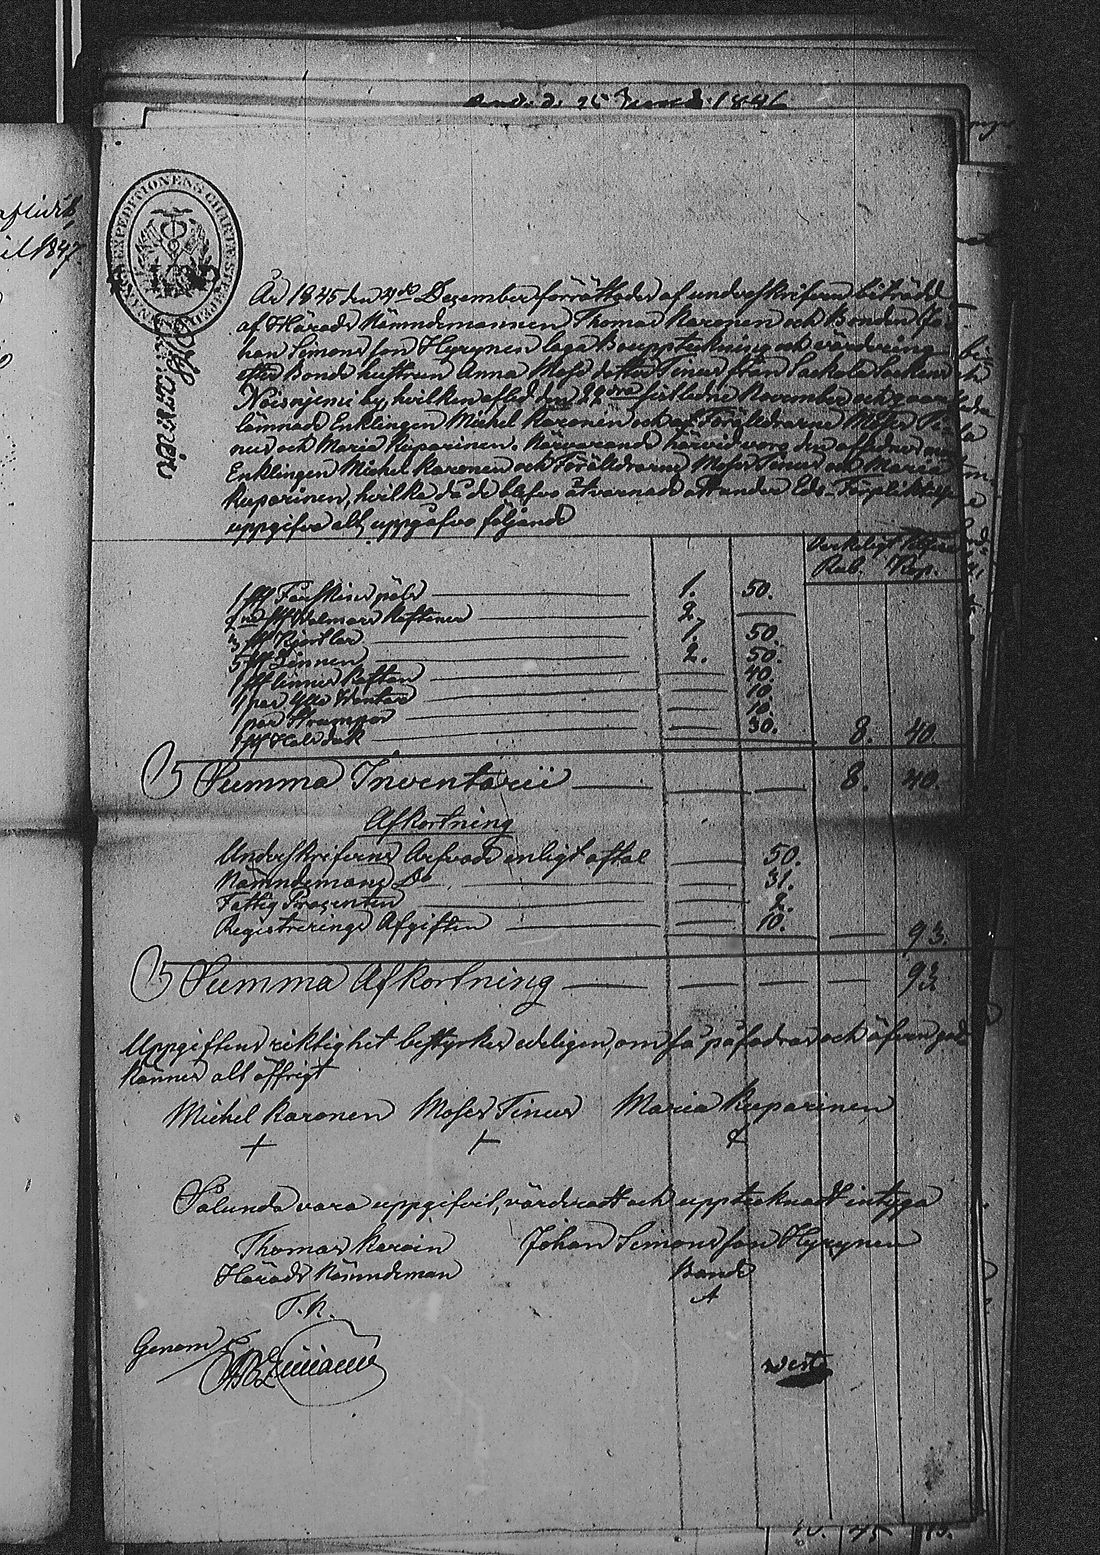 aflidit
il 1847
1846
EXPEDITIONENS CHARTÆ
År 1845 den 4de December förrättades af underskrifven biträdd
af Härads Nämndemannen Thomas Karonen och Bonden Jo-
han Simonsson Hyrynen laga Bouppteckning och värdering
efter Bonde hustrun Anna Moses dotter Tenus från Sackola Socken
Noisniemi by, hvilken afled den förflutne November och
lämnade Enklingen Michel Karonen och Föräldrarne Moses Te-
nus och Maria Ruparinen. Närvarande härvid voro den aflednes
Enklingen Michel Karonen och Föräldrarne Moses Tenus och Maria
Ruparinen, hvilka då de blefvo åtvarnade att under Eds-Förpliktelse
uppgifva allt, uppgåfvo följande
Rub. Kop.
1 st 1. 50.
2 st 2.
3 st Kjortlar 1. 50.
5 st Linnen 2. 50.
1 st linnes Kaftan 40.
1 par Ylle Wantar 10.
1 par Strumpor 10.
1 st Halsduk 30. 8. 40.
Summa Inventarii 8. 40.
Afkortning
Underskrifvens Arfvode enligt aftal 50.
Nämndemans Do 31.
Fattig Procenten 2.
Registrerings Afgiften 10. 93.
Summa Afkortning 93
Uppgiftens riktighet bestyrkes edeligen, om så påfodras och äfven god-
känner allt öffrigt
Michel Karonen Moses Tenus Maria Ruparinen
Sålunda vara uppgifvit, värderadt och upptecknadt intyga
Thomas Karoin Johan Simonsson Hyrynen
Härads Nämndeman Bonde
T. K. A
Genom